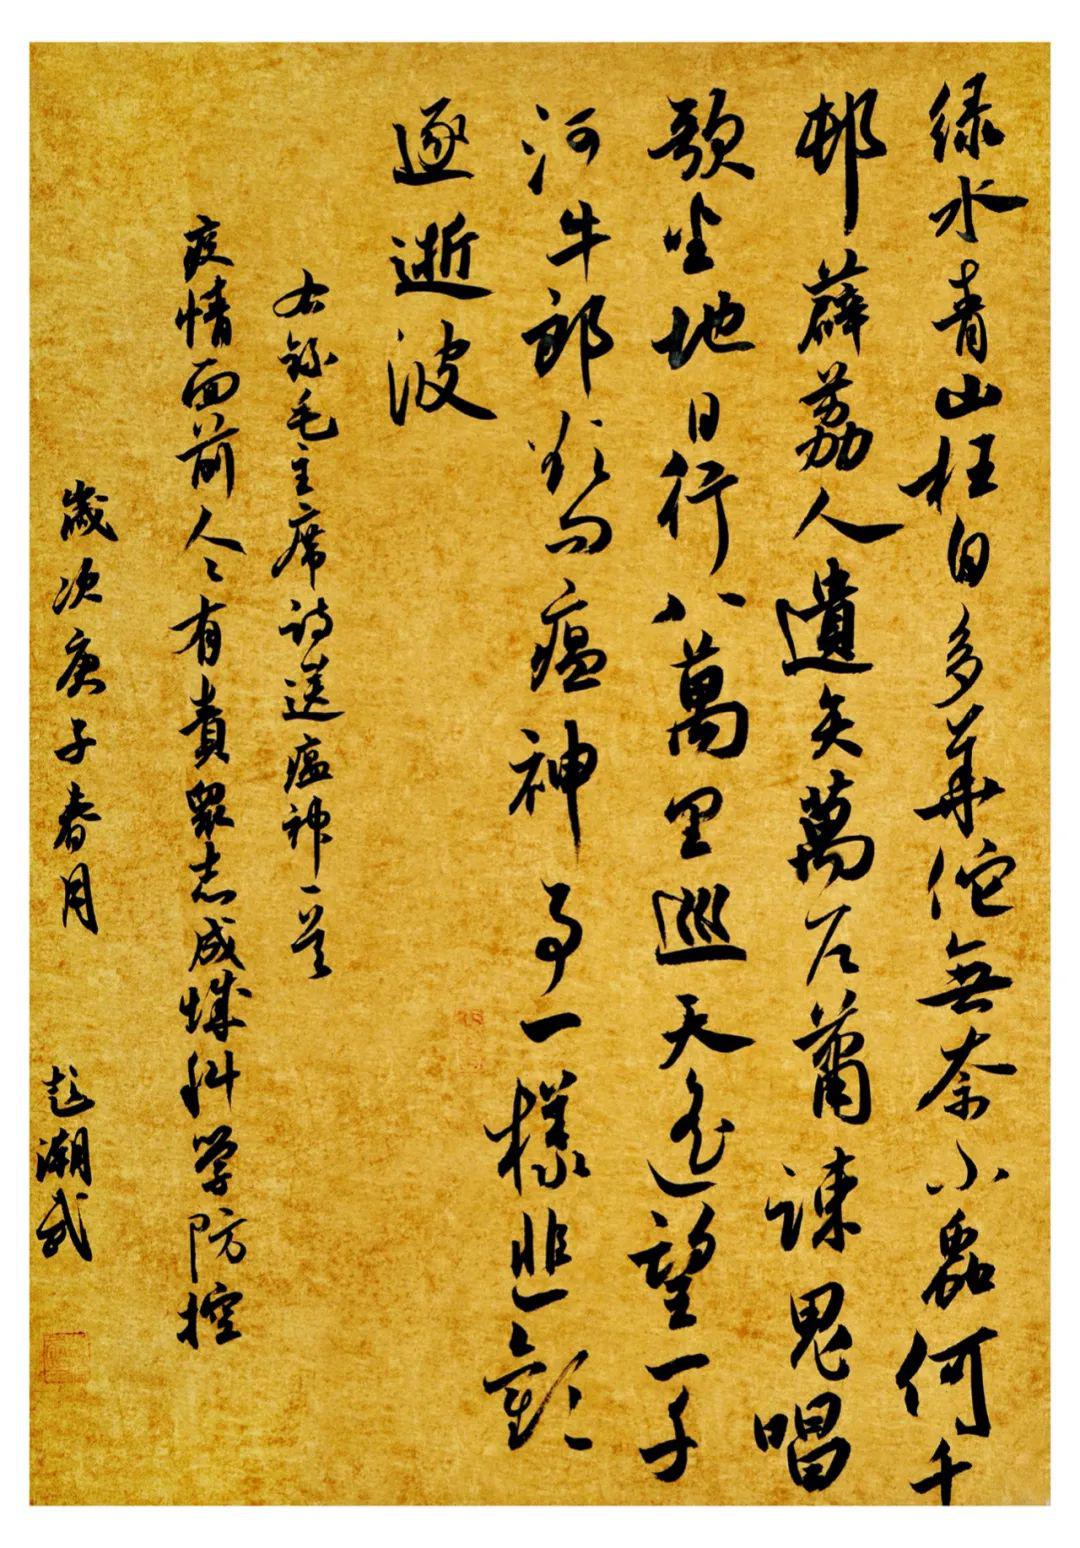 绿水青山枉自多華佗無奈小蟲何千
邨薜荔人遺矢萬户蕭疎鬼唱
歌坐地日行八萬里巡天遥望一千
河牛郎欲问瘟神事一樣悲歡
逐逝波
右録毛主席诗送瘟神一首
疫情面前人々有責衆志成城科学防控
歲次庚子春月 趙潮武